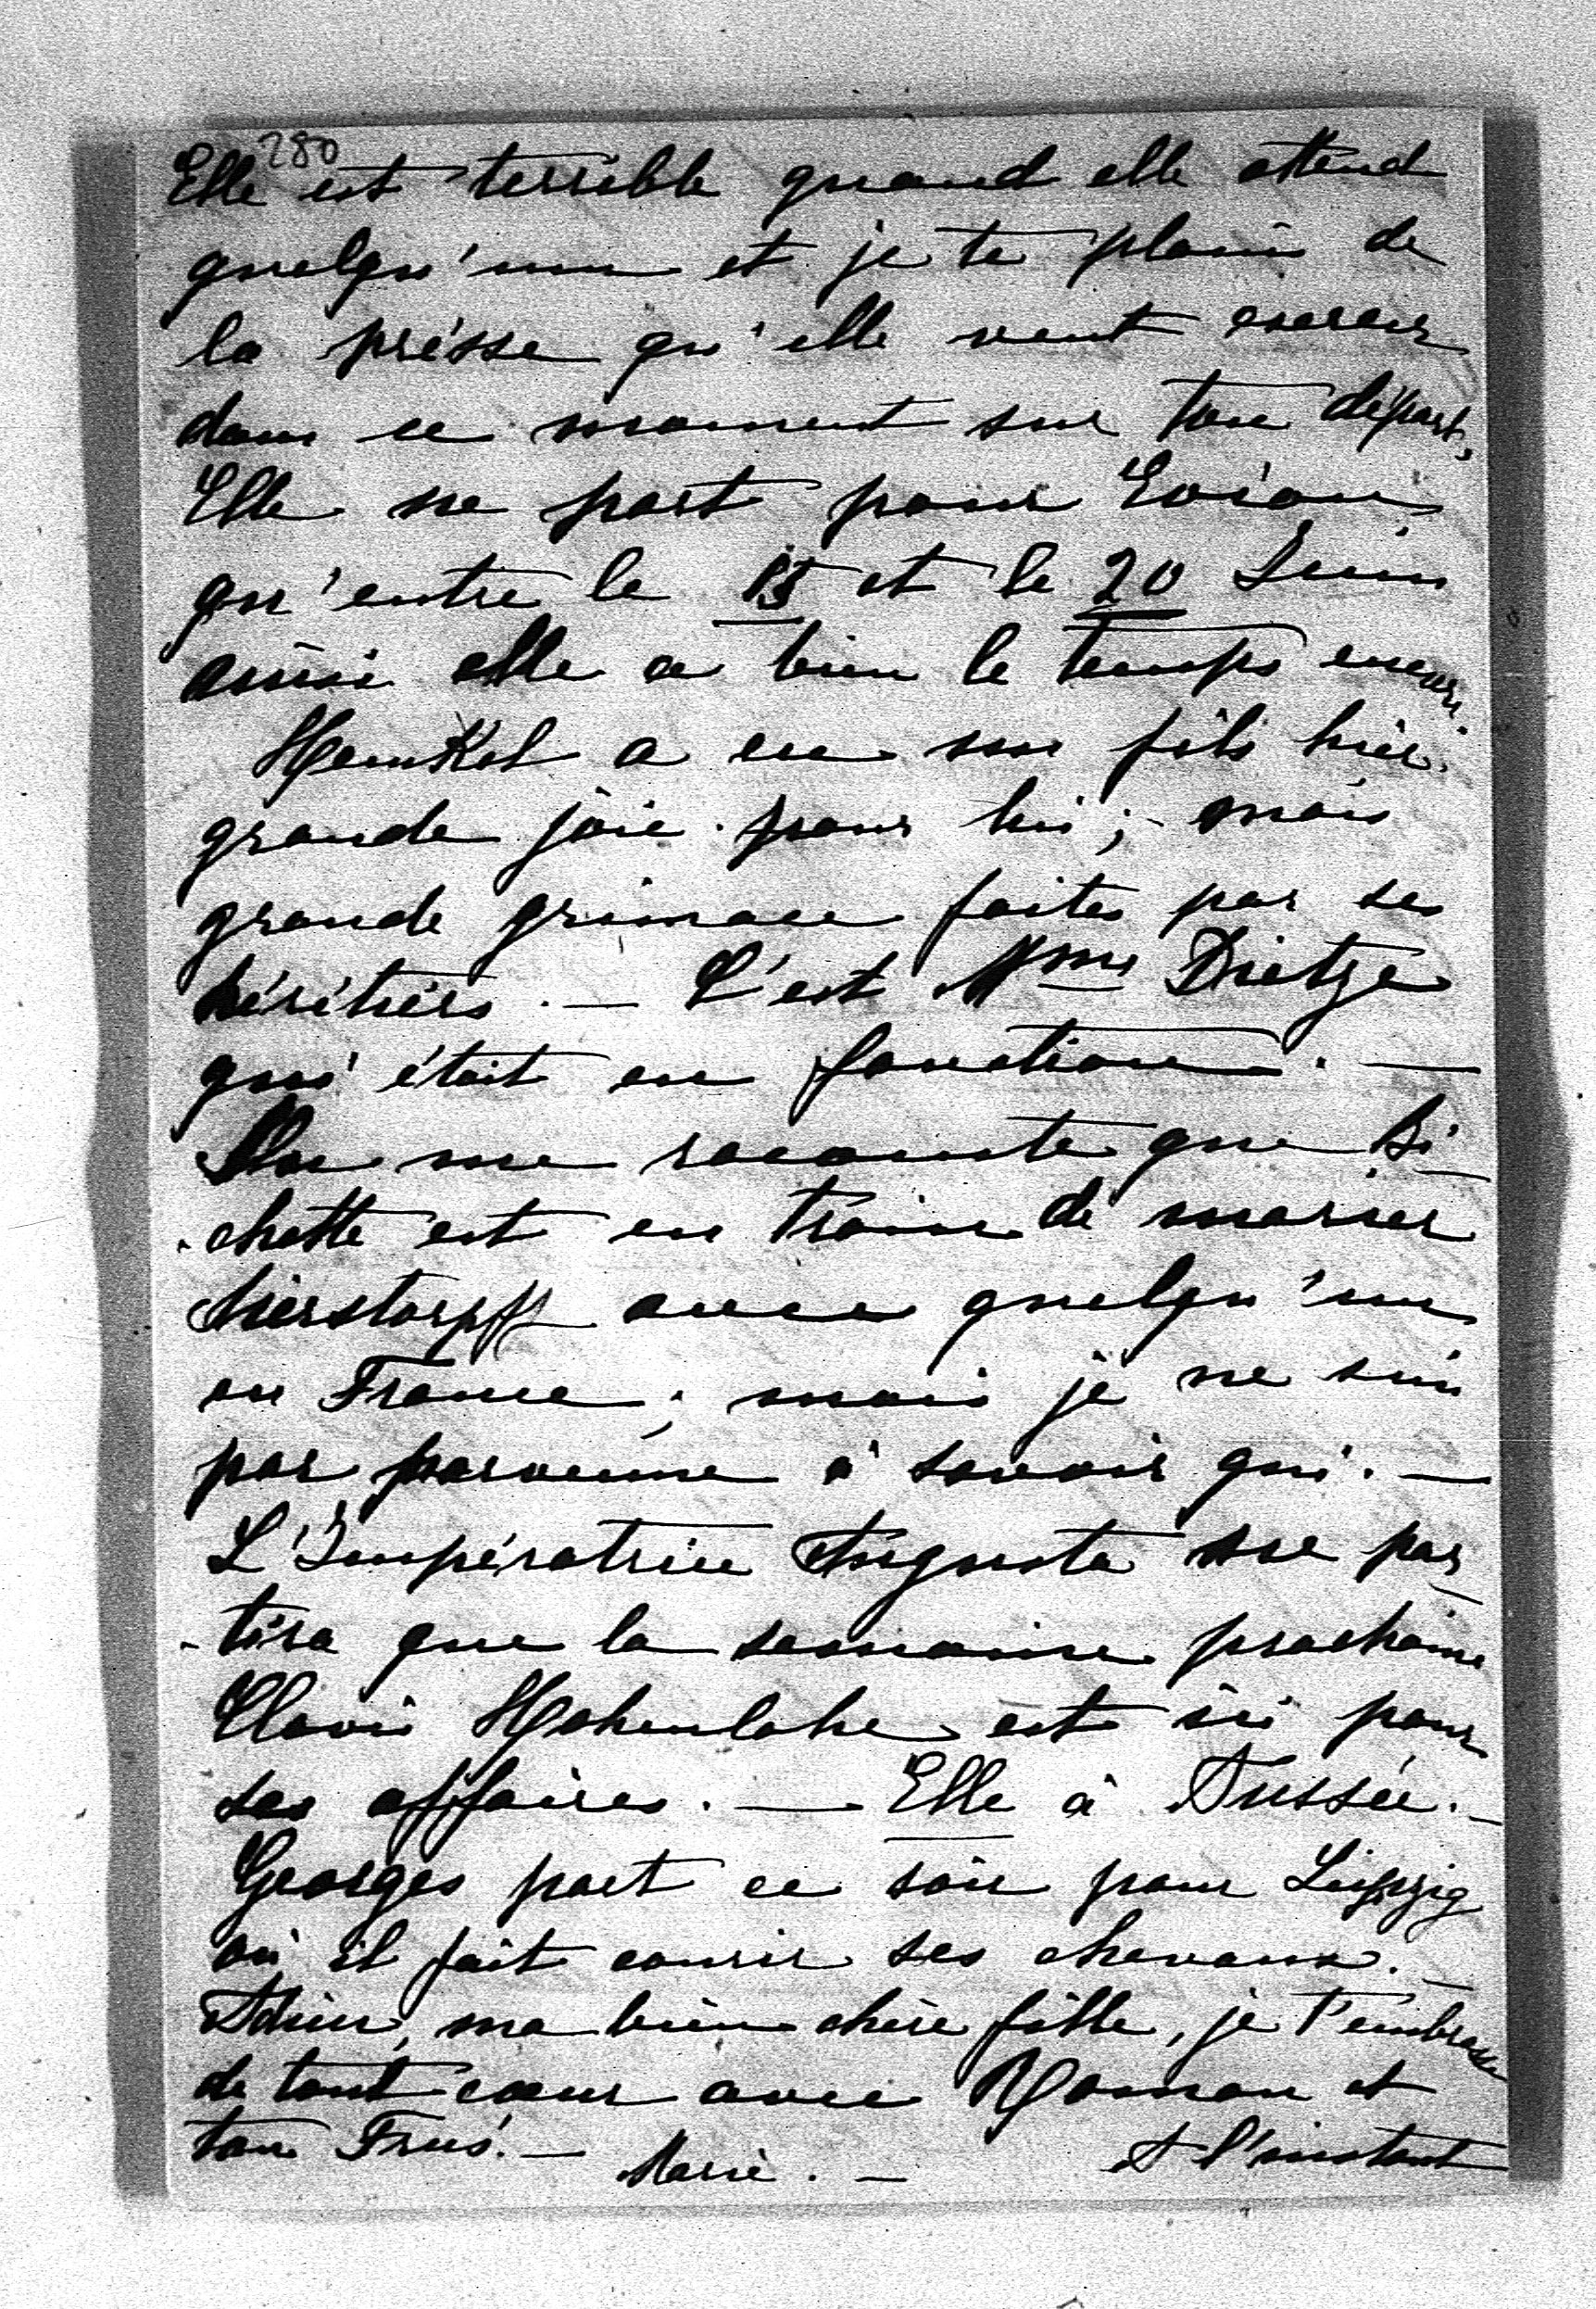 280
Elle est terrible quand elle attend
quelqu'un et je te plains de
la présse qu'elle veut exercer
dans ce moment sur ton départ,
Elle ne part pour Evian
qu'entre le 15 et le 20 Juin
ainsi elle a bien le temps encore.
Henkel a eu un fils hier.
grande joie pour lui; mais
grande grimace faites par ses
héritiers. — C'est Mme Dietze
qui était en fonction. —
On me raconte que Bi-
-chette est en train de marier
Sierstorpff avec quelqu'un
en France; mais je ne suis
pas parvenue à savoir qui. —
L'Impératrice Augusta ne par-
-tira que la semaine prochaine
Clovis Hohenlohe est ici pour
ses affaires. — Elle à Aussée. —
Georges part ce soir pour Leipzig
où il fait courir ses chevaux. —
Adieu, ma bien chère fille, je t'embrasse
de tout cœur avec Roman et
ton Frus. — Marie. — A l'instant